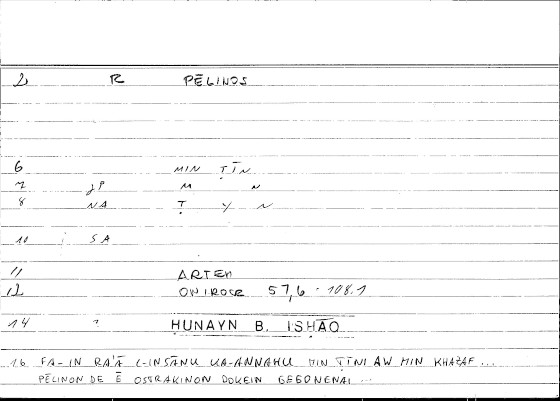 2 R PĒLINOS
6 MIN ṬĪN
7 JP M N
8 NA Ṭ Y N
10 SA
11 ARTEM
12 ONIROCR 57,6 - 108.1
14 ? ḤUNAYN B. ISḤĀQ
16 FA-IN RA'Ā L-INSĀNU KA-ANNAHU MIN ṬĪNI AW MIN KHAZAF ...
PĒLINON DE Ē OSTRAKINON DOKEIN GEGONENAI ...